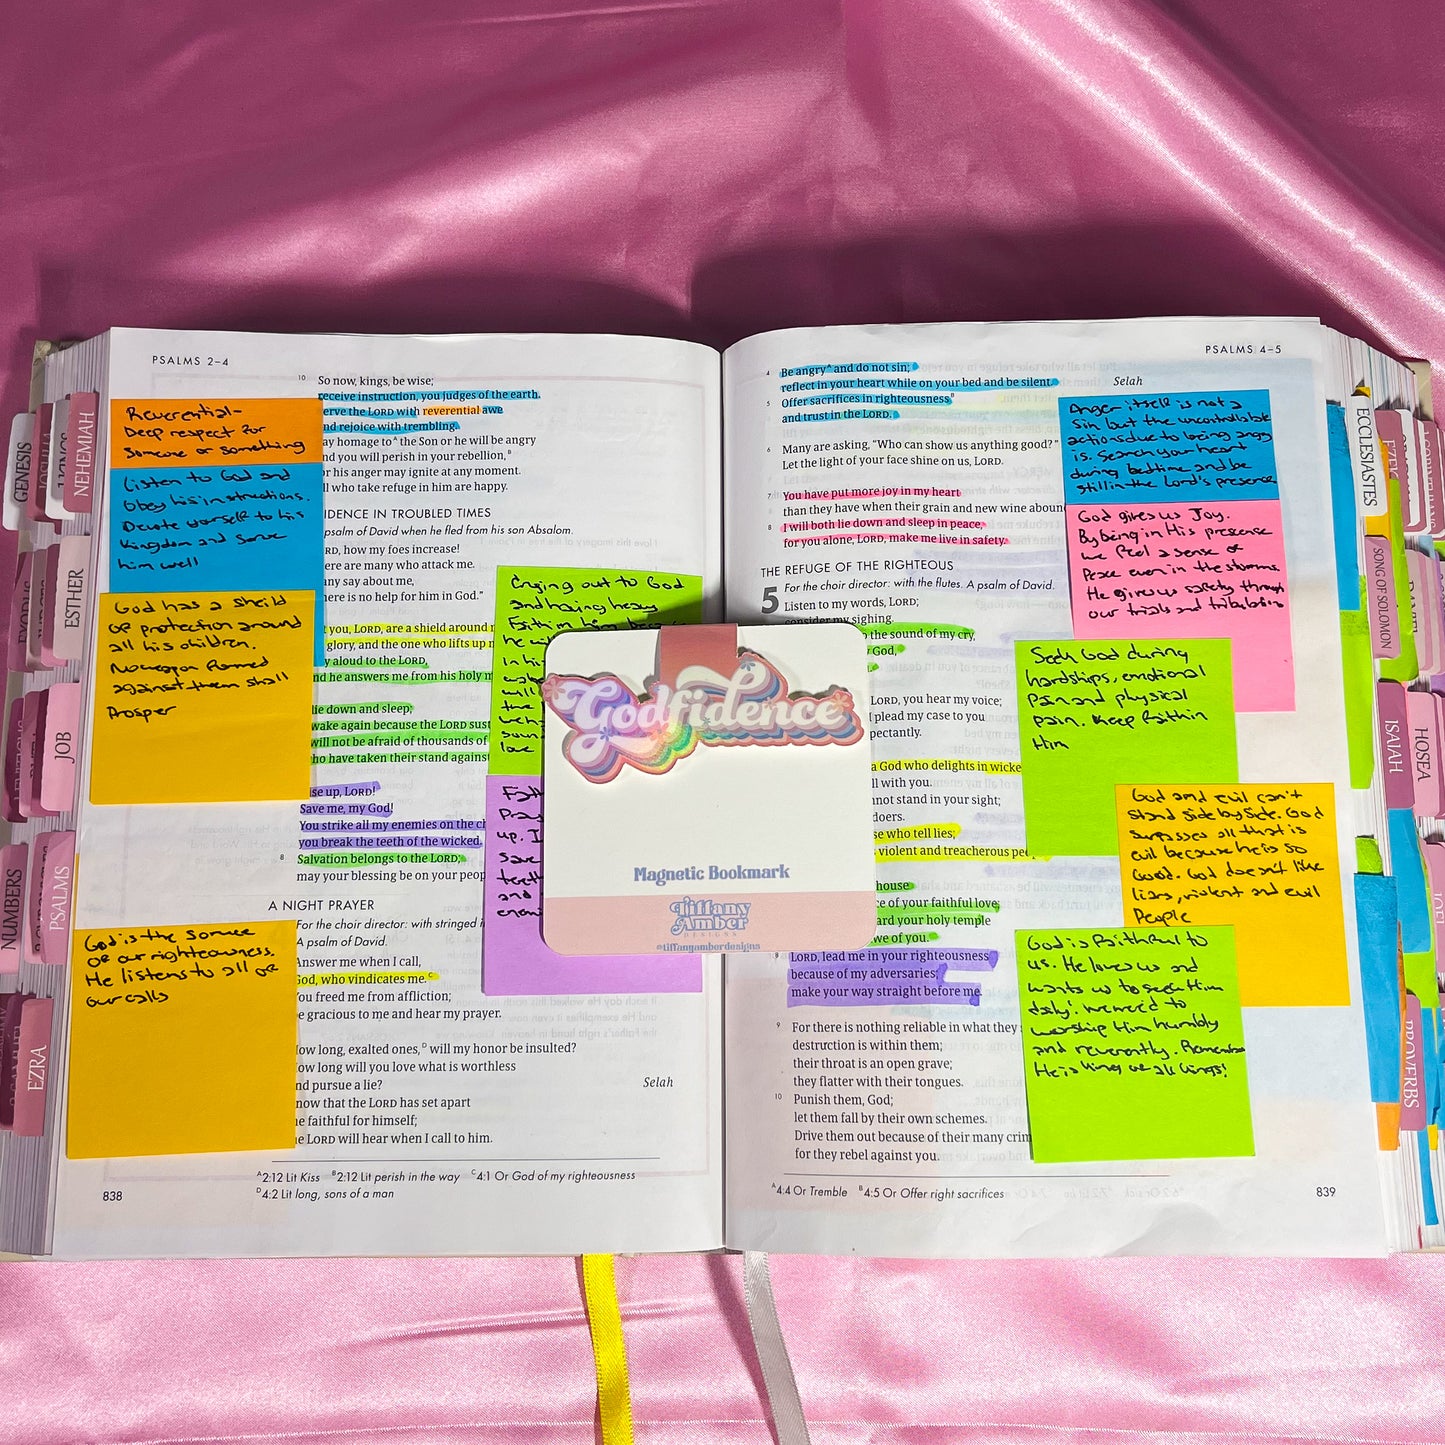 PSALMS 2–4
10 So now, kings, be wise;
receive instruction, you judges of the earth.
erve the LORD with reverential awe
nd rejoice with trembling.
ay homage to A the Son or he will be angry
nd you will perish in your rebellion, B
or his anger may ignite at any moment.
ll who take refuge in him are happy.
IDENCE IN TROUBLED TIMES
psalm of David when he fled from his son Absalom.
RD, how my foes increase!
ere are many who attack me.
any say about me,
here is no help for him in God."
t you, LORD, are a shield around
glory, and the one who lifts up
y aloud to the LORD,
nd he answers me from his holy
lie down and sleep;
wake again because the LORD sust
will not be afraid of thousands of
who have taken their stand against
ise up, LORD!
Save me, my God!
You strike all my enemies on the ch
you break the teeth of the wicked.
8 Salvation belongs to the LORD;
may your blessing be on your peop
A NIGHT PRAYER
For the choir director: with stringed i
A psalm of David.
Answer me when I call,
God, who vindicates me. C
You freed me from affliction;
be gracious to me and hear my prayer.
How long, exalted ones, D will my honor be insulted?
How long will you love what is worthless
nd pursue a lie?
Selah
now that the LORD has set apart
he faithful for himself;
he LORD will hear when I call to him.
A2:12 Lit Kiss B2:12 Lit perish in the way C4:1 Or God of my righteousness
D4:2 Lit long, sons of a man
838
Reverential-
Deep respect for
someone or something
Listen to God and
obey his instructions.
Devote yourself to his
Kingdom and serve
him well
God has a sheild
of protection around
all his children.
No weapon formed
against them shall
Prosper
God is the source
of our righteowness.
He listens to all of
our calls
Crying out to God
and having heavy
Faith in him
he wi
In his
will
the
love
Pray
up. I
save
teeth
and
Godfidence
Magnetic Bookmark
Tiffany
Amber
DESIGNS
@tiffanyamberdesigns
PSALMS 4–5
4 Be angry A and do not sin;
reflect in your heart while on your bed and be silent.
Selah
5 Offer sacrifices in righteousness B
and trust in the LORD.
6 Many are asking, "Who can show us anything good?"
Let the light of your face shine on us, LORD.
7 You have put more joy in my heart
than they have when their grain and new wine abound
8 I will both lie down and sleep in peace,
for you alone, LORD, make me live in safety.
THE REFUGE OF THE RIGHTEOUS
For the choir director: with the flutes. A psalm of David.
5 Listen to my words, LORD;
consider my sighing.
o the sound of my cry,
God,
LORD, you hear my voice;
I plead my case to you
pectantly.
a God who delights in wicke
ll with you.
not stand in your sight;
doers.
se who tell lies;
violent and treacherous peo
house
ce of your faithful love;
ard your holy temple
we of you.
8 LORD, lead me in your righteousness
because of my adversaries;
make your way straight before me.
9 For there is nothing reliable in what they
destruction is within them;
their throat is an open grave;
they flatter with their tongues.
10 Punish them, God;
let them fall by their own schemes.
Drive them out because of their many crim
for they rebel against you.
A4:4 Or Tremble B4:5 Or Offer right sacrifices
839
Anger itself is not a
Sin but the uncontrollable
actions due to being angry
is. Search your heart
during bedtime and be
still in the Lord's presence
God gives us Joy.
By being in His presence
we feel a sense of
Peace even in the storms.
He gives us safety through
our trials and tribulations
Seek God during
hardships, emotional
Pain and physical
pain. Keep faith in
Him
God and evil can't
stand side by side. God
surpasses all that is
evil because he is so
Good. God doesn't like
liars, violent and evil
People
God is faithful to
us. He loves us and
wants us to seek Him
daily! we need to
worship Him humbly
and reverently. Remember
He is king of all kings!
GENESIS
JOSHUA
NEHEMIAH
EXODUS
JUDGES
ESTHER
JOB
NUMBERS
PSALMS
EZRA
ECCLESIASTES
EZEK
SONG OF SOLOMON
DANIEL
ISAIAH
HOSEA
JOEL
PROVERBS